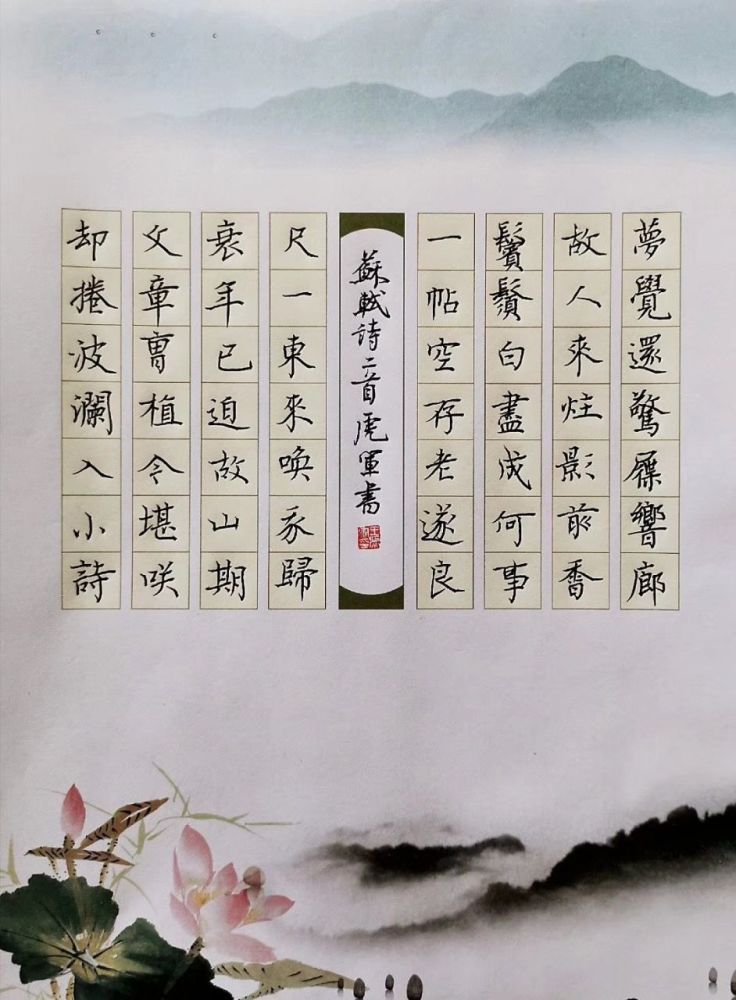 夢覺還驚屧響廊
故人來炷影前香
鬢鬚白盡成何事
一帖空存老遂良
蘇軾詩二首虎軍書
尺一東來喚我歸
衰年已迫故山期
文章曹植今堪咲
却捲波瀾入小詩